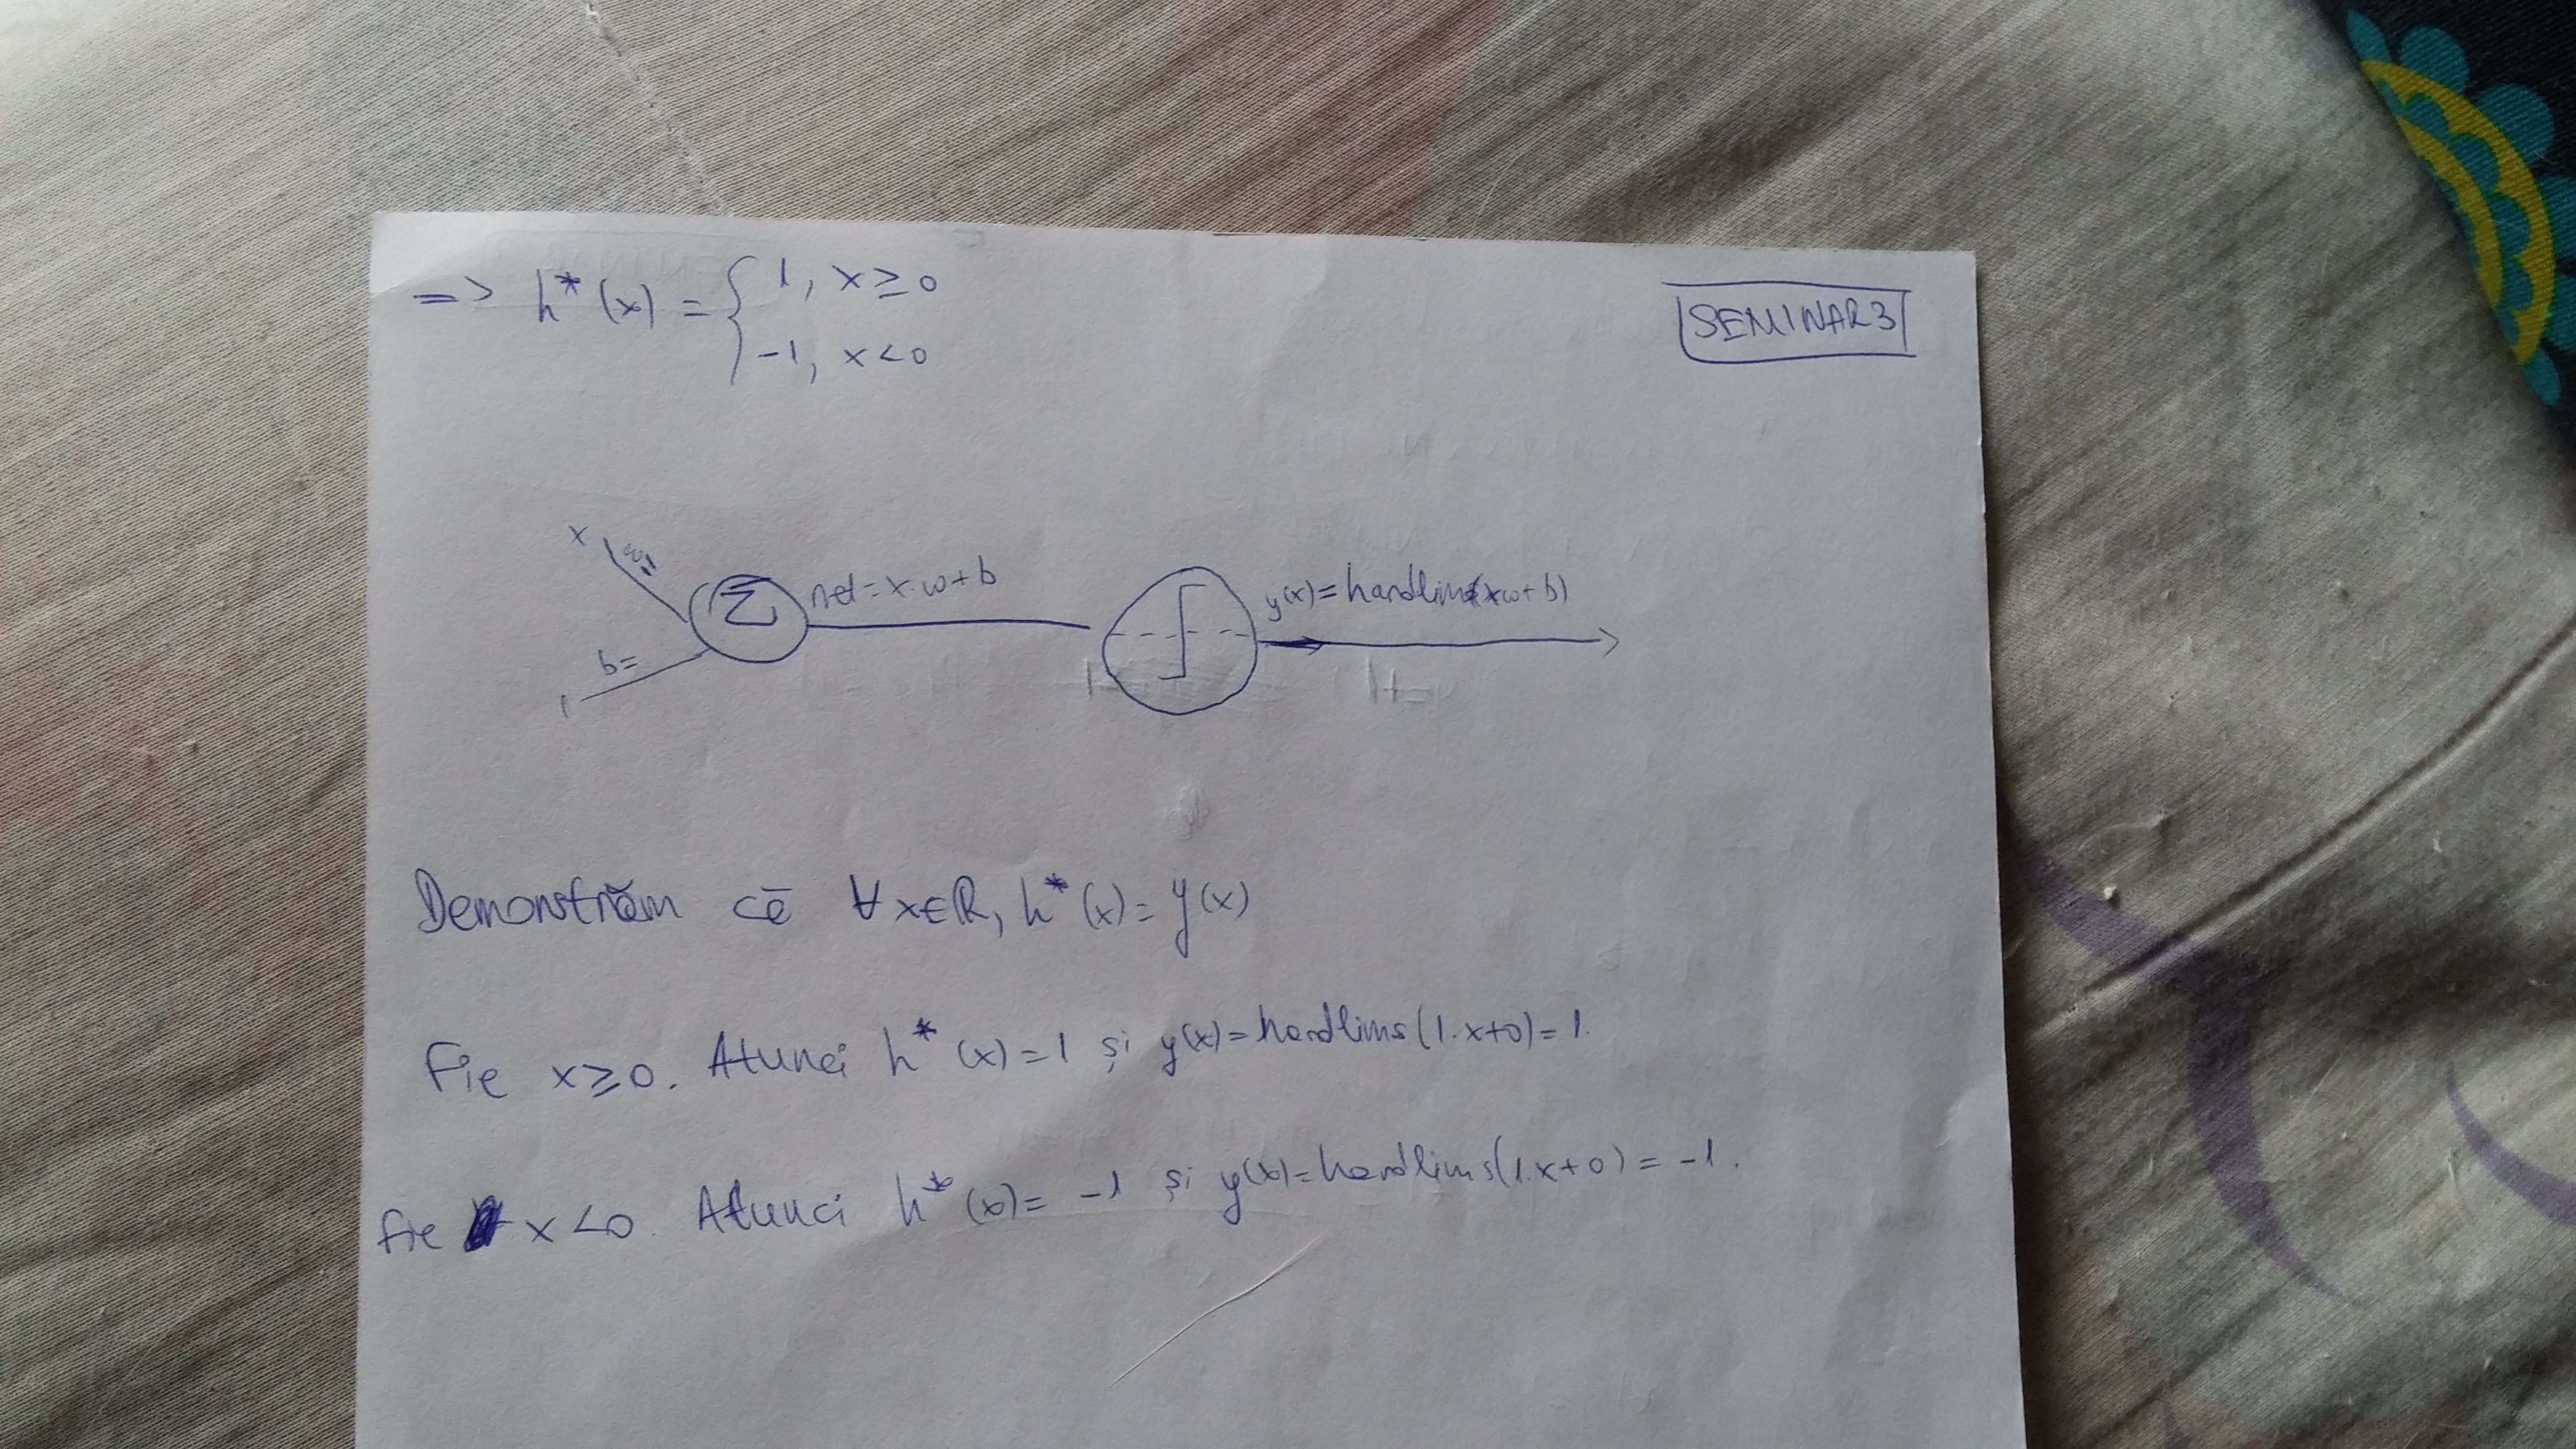 SEMINAR 3
=> h*(x) = { 1, x ≥ 0
-1, x < 0
x
w=
1
b=
Σ
net = x·w+b
y(x) = hardlims(xw+b)
Demonstrăm că ∀ x∈R, h*(x) = y(x)
Fie x ≥ 0. Atunci h*(x) = 1 și y(x) = hardlims(1·x+0) = 1.
Fie x < 0. Atunci h*(x) = -1 și y(x) = hardlims(1·x+0) = -1.